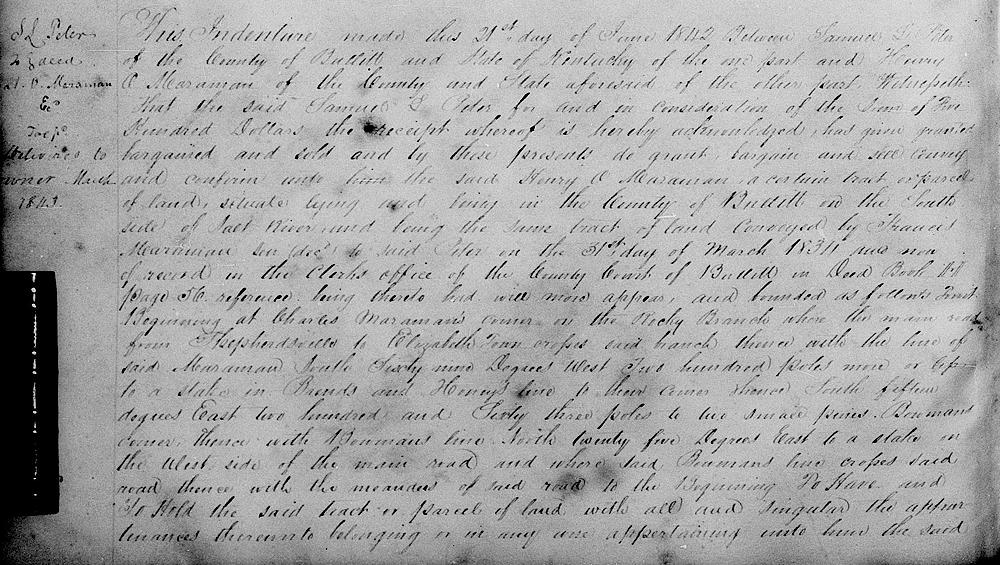 S L Peter
This Indenture made this 21st day of June 1842 Between Samuel L Peter
of the County of Bullitt and State of Kentucky of the one part and Henry
deed
H. O Maraman
O Maraman of the County and State aforesaid of the other part Witnesseth
That the said Samuel L Peter for and in consideration of the Sum of Five
Hundred Dollars the receipt whereof is hereby acknowledged, has given granted
Delivered to
bargained and sold and by these presents do grant, bargain and sell convey
owner March
and confirm unto him the said Henry O Maraman a certain tract or parcel
1843
of land, situate lying and being in the County of Bullitt on the South
side of Salt River and being the same tract of land Conveyed by Francis
Maraman sen decd to said Peter on the 31st day of March 1834 and now
of record in the Clerks office of the County Court of Bullitt in Deed Book
page 56. reference being thereto had will more appear, and bounded as follows
Beginning at Charles Maraman's corner on the Rocky Branch where the main road
from Shepherdsville to Elizabeth Town crosses said branch thence with the line of
said Maraman South Sixty nine Degrees West Two hundred poles more or less
to a stake in and Henry's line to their corner thence South fifteen
degrees East two hundred and Sixty three poles to two small pines. Bowmans
corner, thence with Bowmans line North twenty five Degrees East to a stake on
the West side of the main road and where said Bowmans line crosses said
road thence with the meanders of said road to the Beginning To Have and
To Hold the said tract or parcel of land with all and Singular the appur
tenances thereunto belonging or in any wise appertaining unto him the said